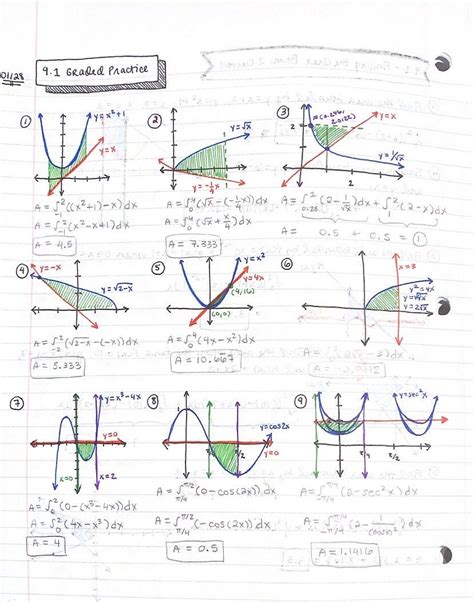 01/28
9.1 Graded Practice
①
y=x²+1
y=x
A=∫₋₁²((x²+1)-x)dx
A=∫₋₁²(x²-x+1)dx
A = 4.5
②
y=√x
y=-¼x
A=∫₀⁴(√x-(-¼x))dx
A=∫₀⁴(√x+x/4)dx
A = 7.333
③
2
y=x
y=1/√x
2
A=∫₀.₂₅¹(2-1/√x)dx+∫₁²(2-x)dx
A= 0.5 + 0.5 = ①
④
y=-x
y=√2-x
A=∫₋₂²(√2-x-(-x))dx
A= 5.333
⑤
y=x²
y=4x
(4,16)
(0,0)
A=∫₀⁴(4x-x²)dx
A= 10.667
⑥
x=3
y²=4x
y=√4x
y=2√x
⑦
y=x³-4x
y=0
x=0
x=2
A=∫₀²(0-(x³-4x))dx
A=∫₀²(4x-x³)dx
A = 4
⑧
1
y=cos2x
π/2
A=∫π/4^π/2(0-cos(2x))dx
A=∫π/4^π/2(-cos(2x))dx
A = 0.5
⑨
y=sec²x
π/4
π/2
A=∫-π/4^π/4(2-sec²x)dx
A=∫-π/4^π/4(2-1/(cosx)²)dx
A= 1.1416